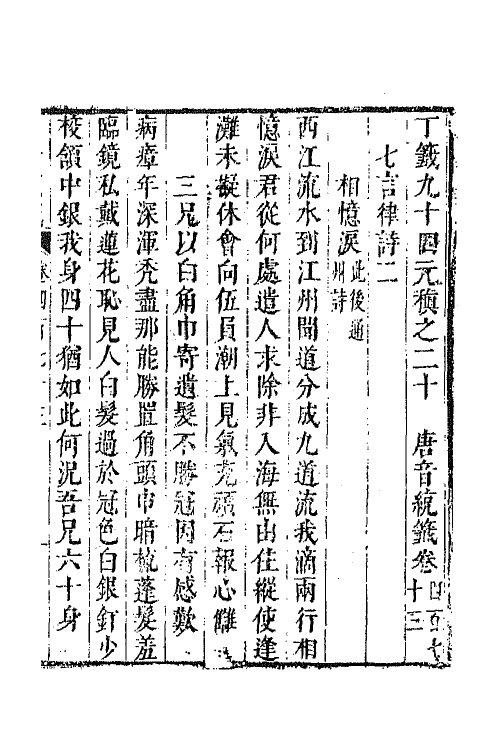 丁籤九十四元稹之二十　唐音統籤卷四百七十三
七言律詩二
相憶淚此後通州詩
西江流水到江州聞道分成九道流我滴兩行相
憶淚君從何處遣人求除非入海無由住縱使逢
灘未擬休會向伍員潮上見氣充頑石報心讎
三兄以白角巾寄遺髮不勝冠因有感歎
病瘴年深渾禿盡那能勝置角頭巾暗梳蓬髮羞
臨鏡私戴蓮花恥見人白髮過於冠色白銀釘少
校頷中銀我身四十猶如此何況吾兄六十身